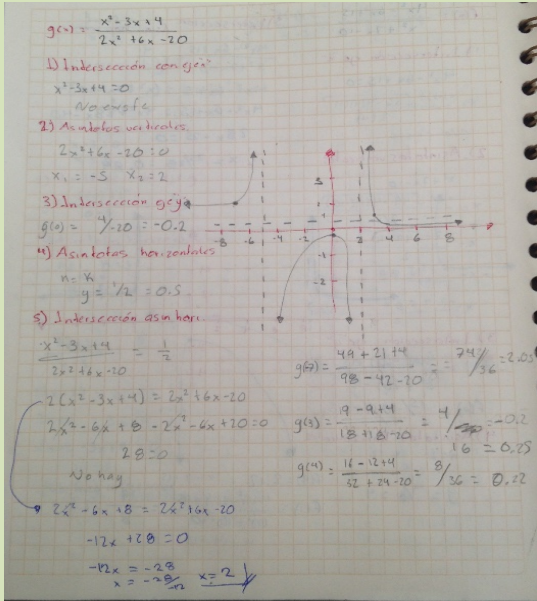 g(x) = x² - 3x + 4 / 2x² + 6x - 20
1) Intersección con eje x
x² - 3x + 4 = 0
No existe
2) Asíntotas verticales
2x² + 6x - 20 = 0
x₁ = -5 x₂ = 2
3) Intersección eje y
g(0) = 4/-20 = -0.2
4) Asíntotas horizontales
n = k
y = 1/2 = 0.5
5) Intersección asin hori.
x² - 3x + 4 / 2x² + 6x - 20 = 1/2
2(x² - 3x + 4) = 2x² + 6x - 20
2x² - 6x + 8 - 2x² - 6x + 20 = 0
28 = 0
No hay
2x² - 6x + 8 = 2x² + 6x - 20
-12x + 28 = 0
-12x = -28
x = -28/-12 x = 2
-8 -6 -4 -2 2 4 6 8
-1
-2
= 49 + 21 + 4 / 98 - 42 - 20 = 74/36 = 2.05
g(3) = 9 - 9 + 4 / 18 + 18 - 20 = 4/ = -0.2
16 = 0.25
g(4) = 16 - 12 + 4 / 32 + 24 - 20 = 8/36 = 0.22